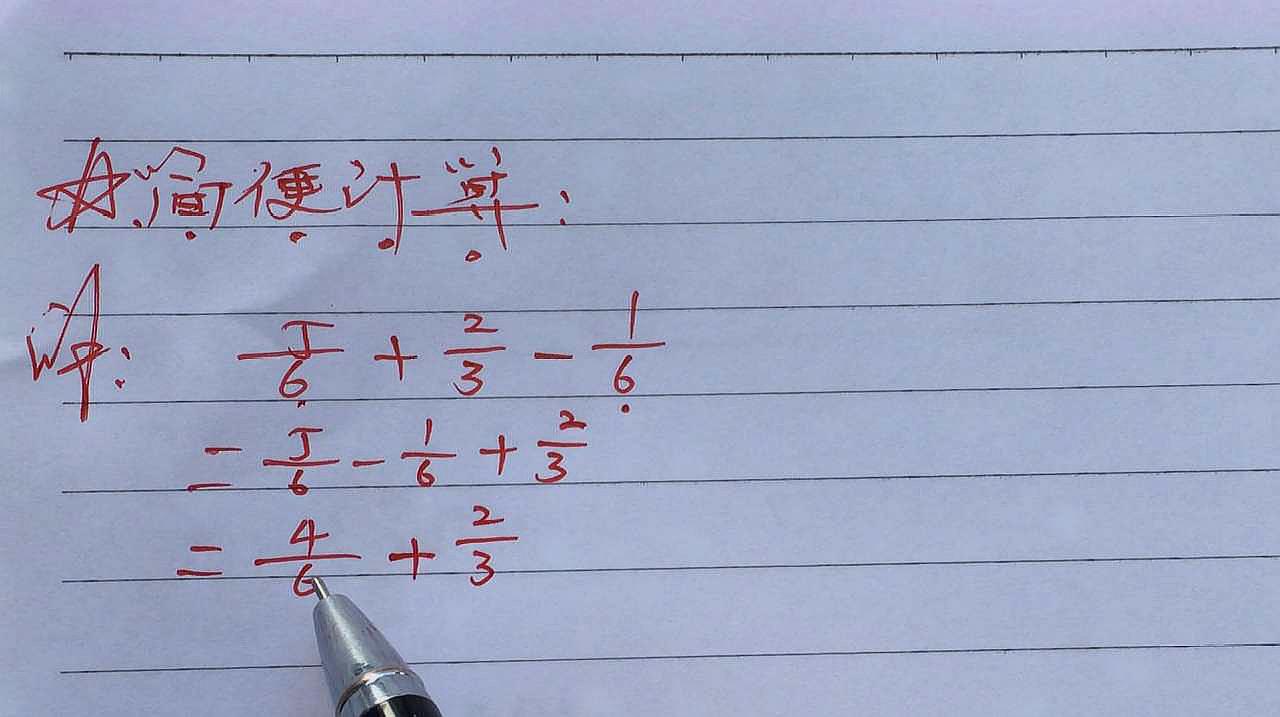 ☆简便计算:
解: 5/6 + 2/3 - 1/6
= 5/6 - 1/6 + 2/3
= 4/6 + 2/3